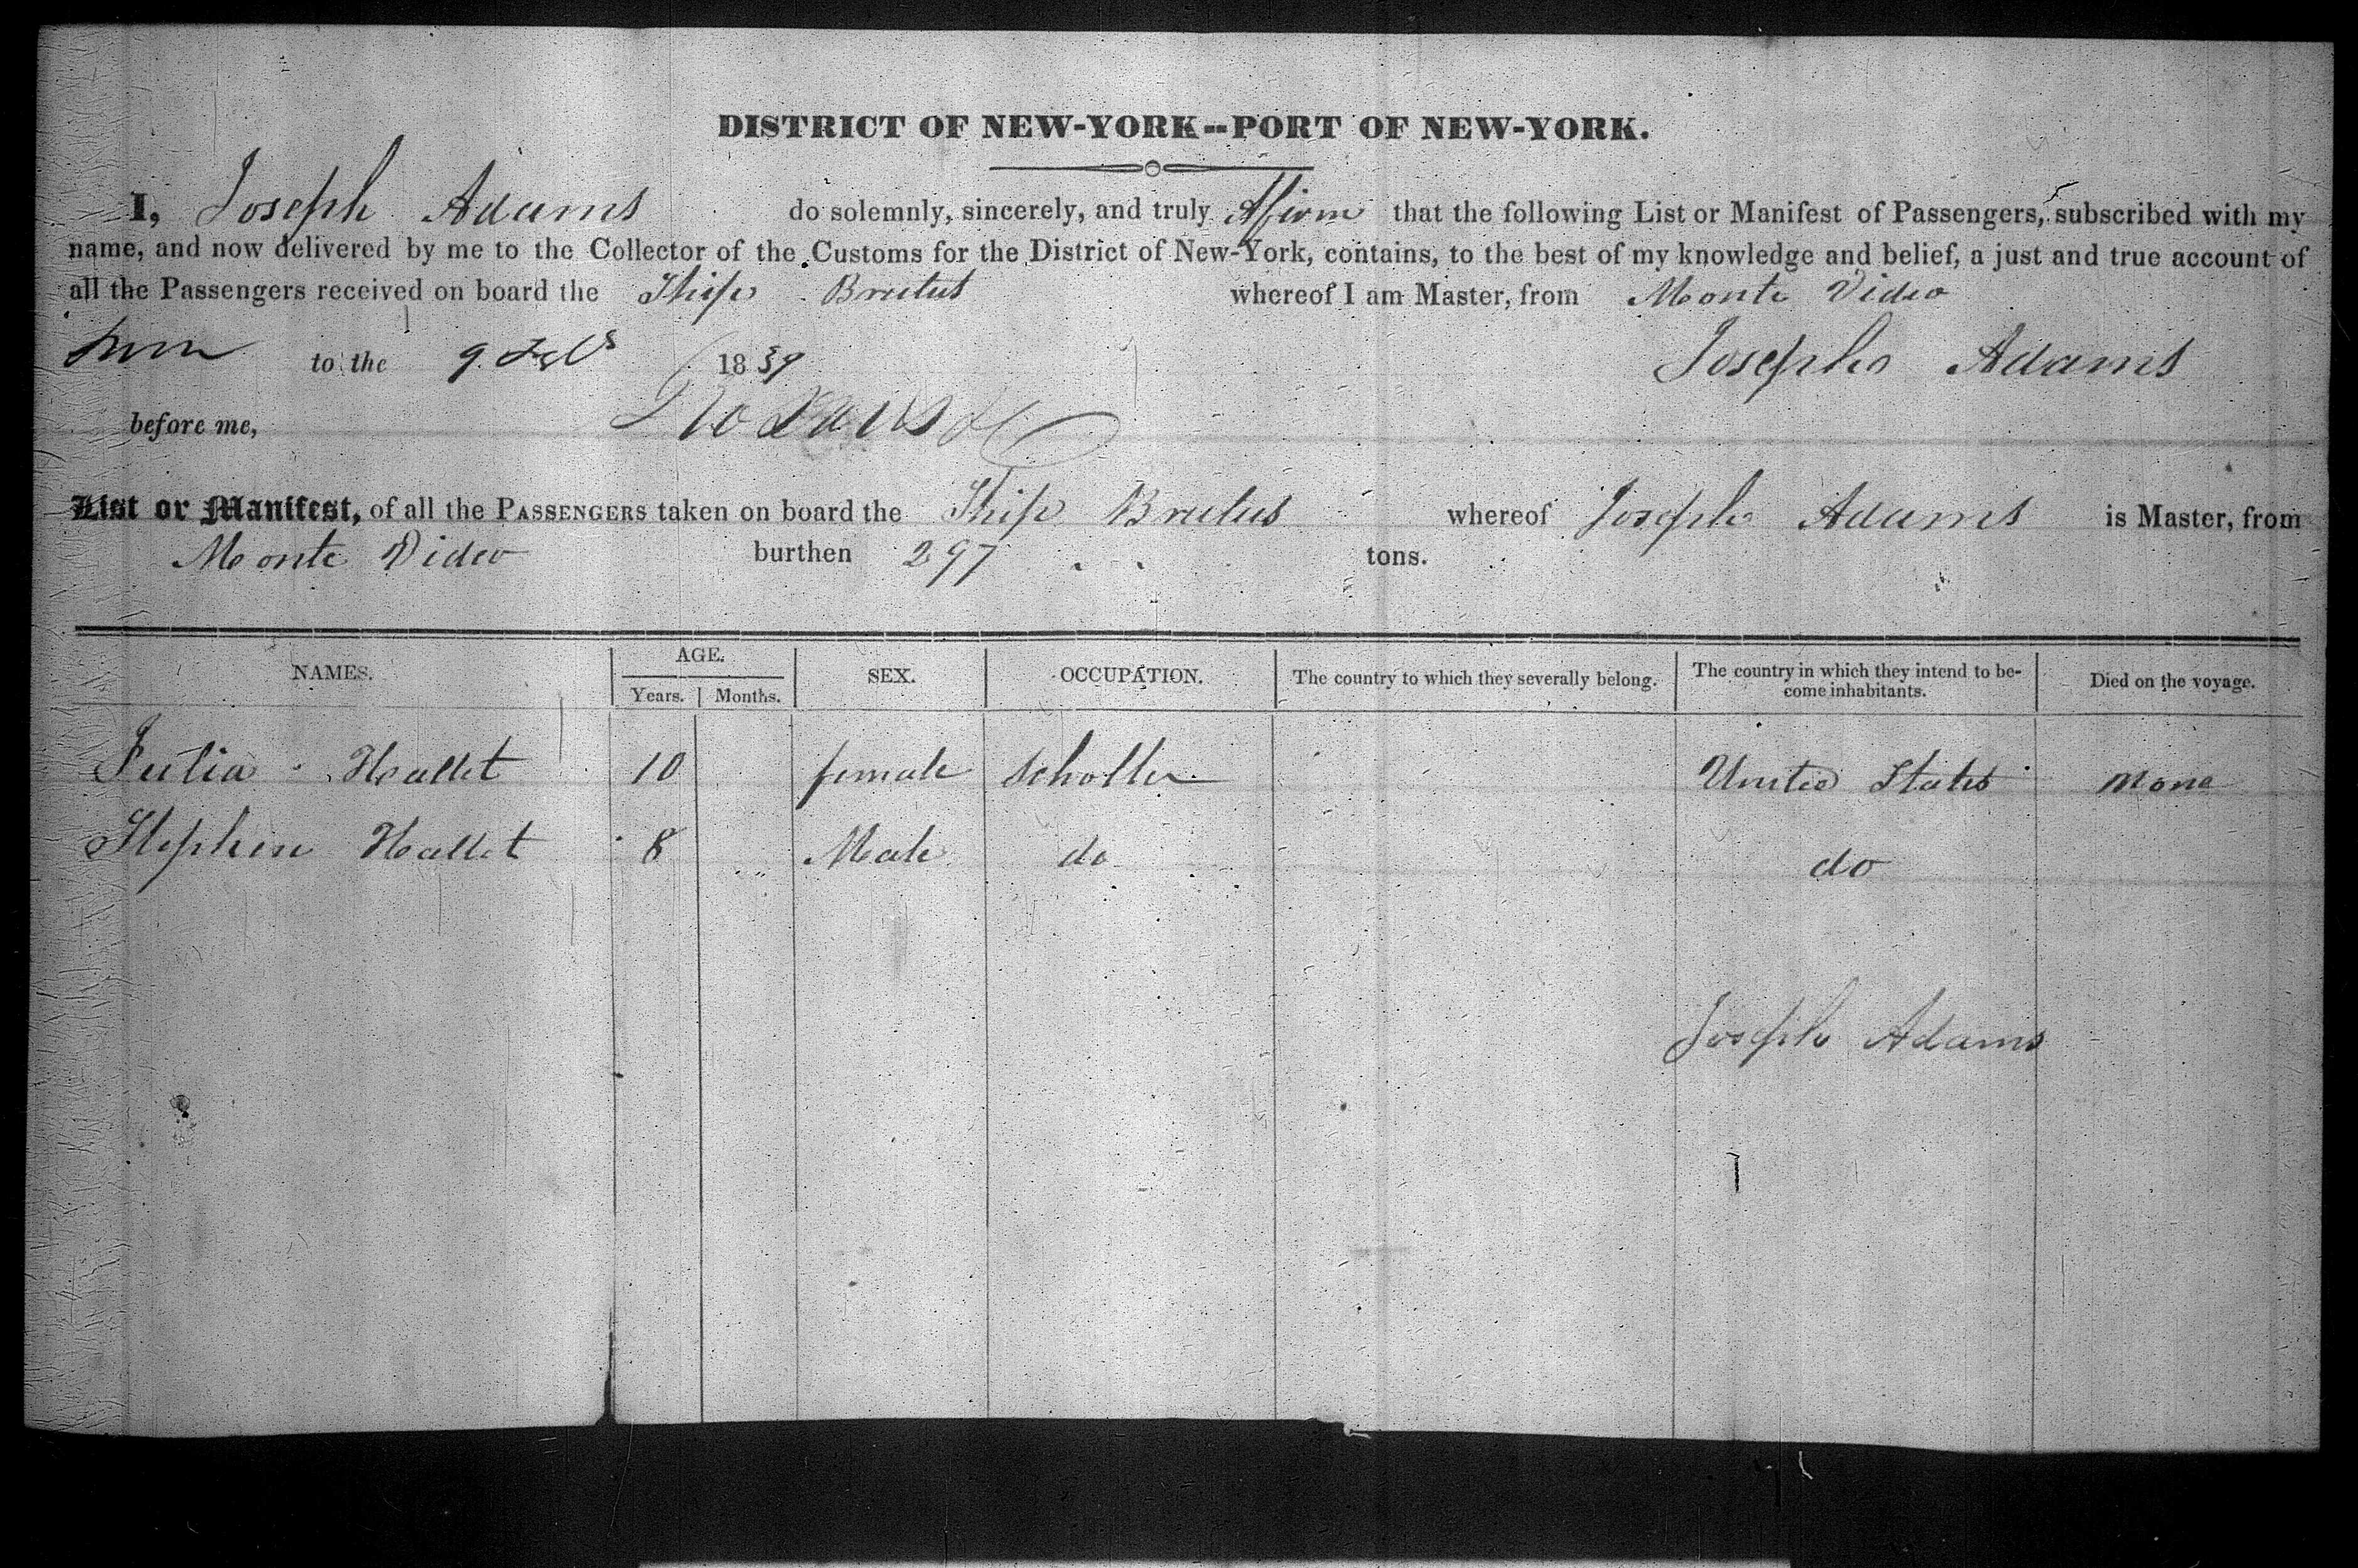 DISTRICT OF NEW-YORK--PORT OF NEW-YORK.
I, Joseph Adams do solemnly, sincerely, and truly Affirm that the following List or Manifest of Passengers, subscribed with my
name, and now delivered by me to the Collector of the Customs for the District of New-York, contains, to the best of my knowledge and belief, a just and true account of
all the Passengers received on board the Ship Brutus whereof I am Master, from Monte Video
to the 9 Feb 1839 Joseph Adams
before me,
List or Manifest, of all the PASSENGERS taken on board the Ship Brutus whereof Joseph Adams is Master, from
Monte Video burthen 297 tons.
NAMES. AGE. Years. Months. SEX. OCCUPATION. The country to which they severally belong. The country in which they intend to be- come inhabitants. Died on the voyage.
Julia Hallet 10 female scholler United States None
Stephen Hallet 8 Male do do
Joseph Adams